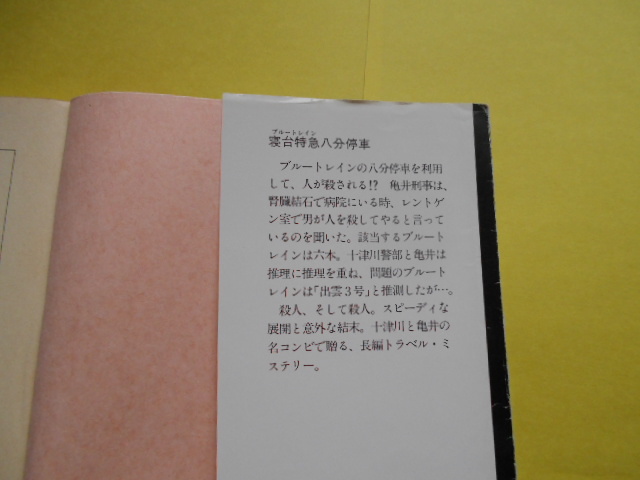 ブルートレイン
寝台特急八分停車
ブルートレインの八分停車を利用
して、人が殺される!? 亀井刑事は、
腎臓結石で病院にいる時、レントゲ
ン室で男が人を殺してやると言って
いるのを聞いた。該当するブルート
レインは六本。十津川警部と亀井は
推理に推理を重ね、問題のブルート
レインは「出雲3号」と推測したが…。
殺人、そして殺人。スピーディな
展開と意外な結末。十津川と亀井の
名コンビで贈る、長編トラベル・ミ
ステリー。